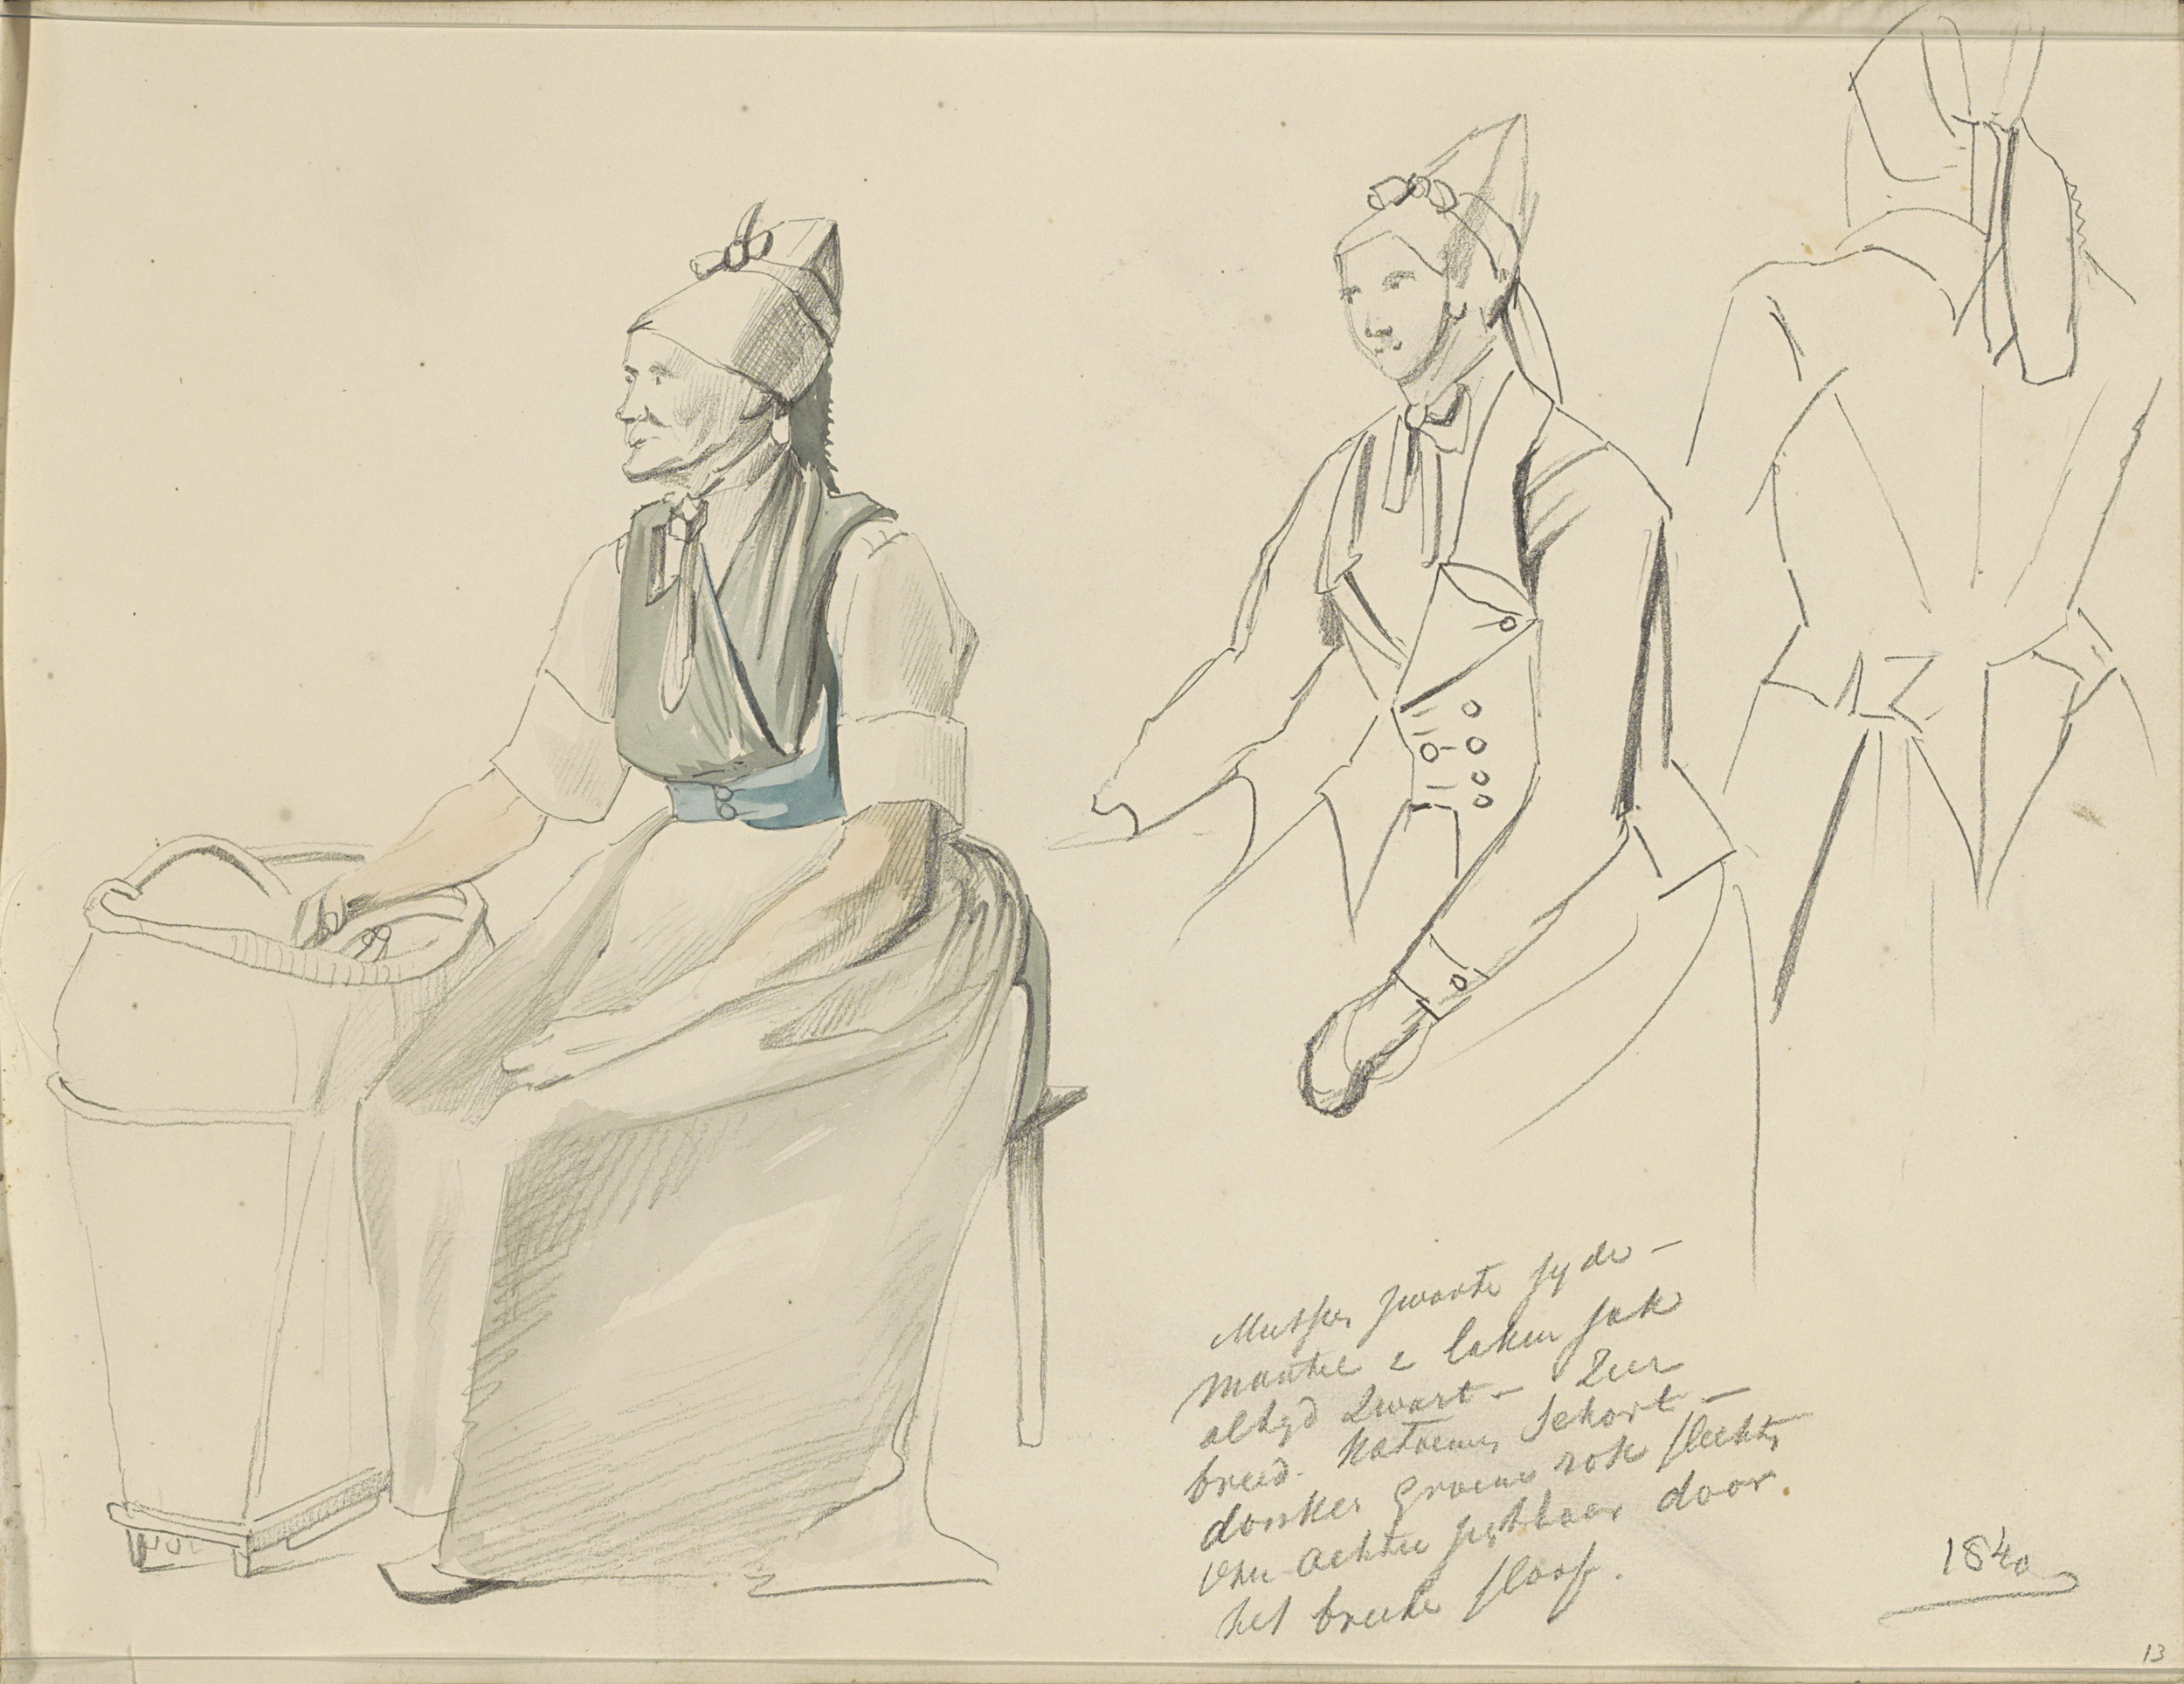 Mutsen zwarte zyde -
mantel & laken jak
altyd Zwart - Zeer
breed. Katoenen Schort -
donker groene rok slechts
van achter zigtbaar door
het breede sloof.
1840
13